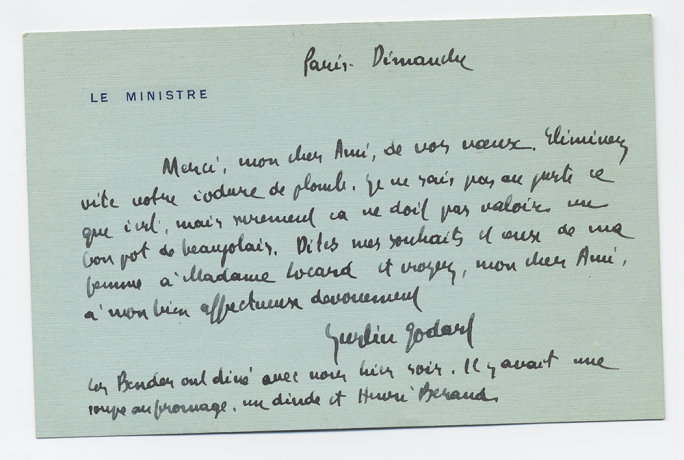 Paris. Dimanche
LE MINISTRE
Merci, mon cher Ami, de vos vœux. Eliminez
vite votre iodure de plomb. Je ne sais pas au juste ce
que c'est, mais surement ca ne doit pas valoir un
bon pot de beaujolais. Dites mes souhaits et ceux de ma
femme à Madame Locard et croyez, mon cher Ami,
à mon bien affectueux dévouement
Justin Godart
Les Bender ont diné avec nous hier soir. Il y avait une
soupe au fromage, un dinde et Henri Beraud.